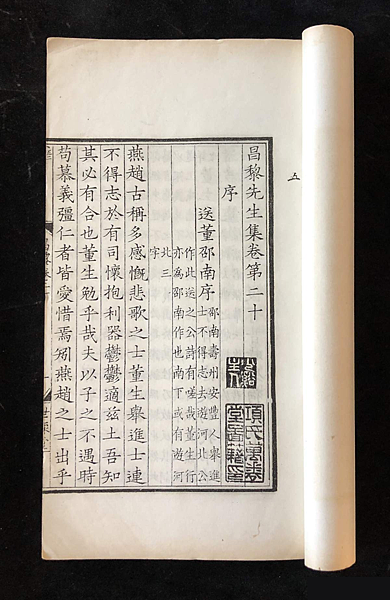 五
昌黎先生集卷第二十
序
送董邵南序
邵南壽州安豐人舉進
士不得志去遊河北公
作此送之公詩有嗟哉董生行
亦為邵南作也南下或有遊河
北三
字
燕趙古稱多感慨悲歌之士董生舉進士連
不得志於有司懷抱利器鬱鬱適茲土吾知
其必有合也董生勉乎哉夫以子之不遇時
苟慕義彊仁者皆愛惜焉矧燕趙之士出乎
項氏萬卷
堂圖籍印